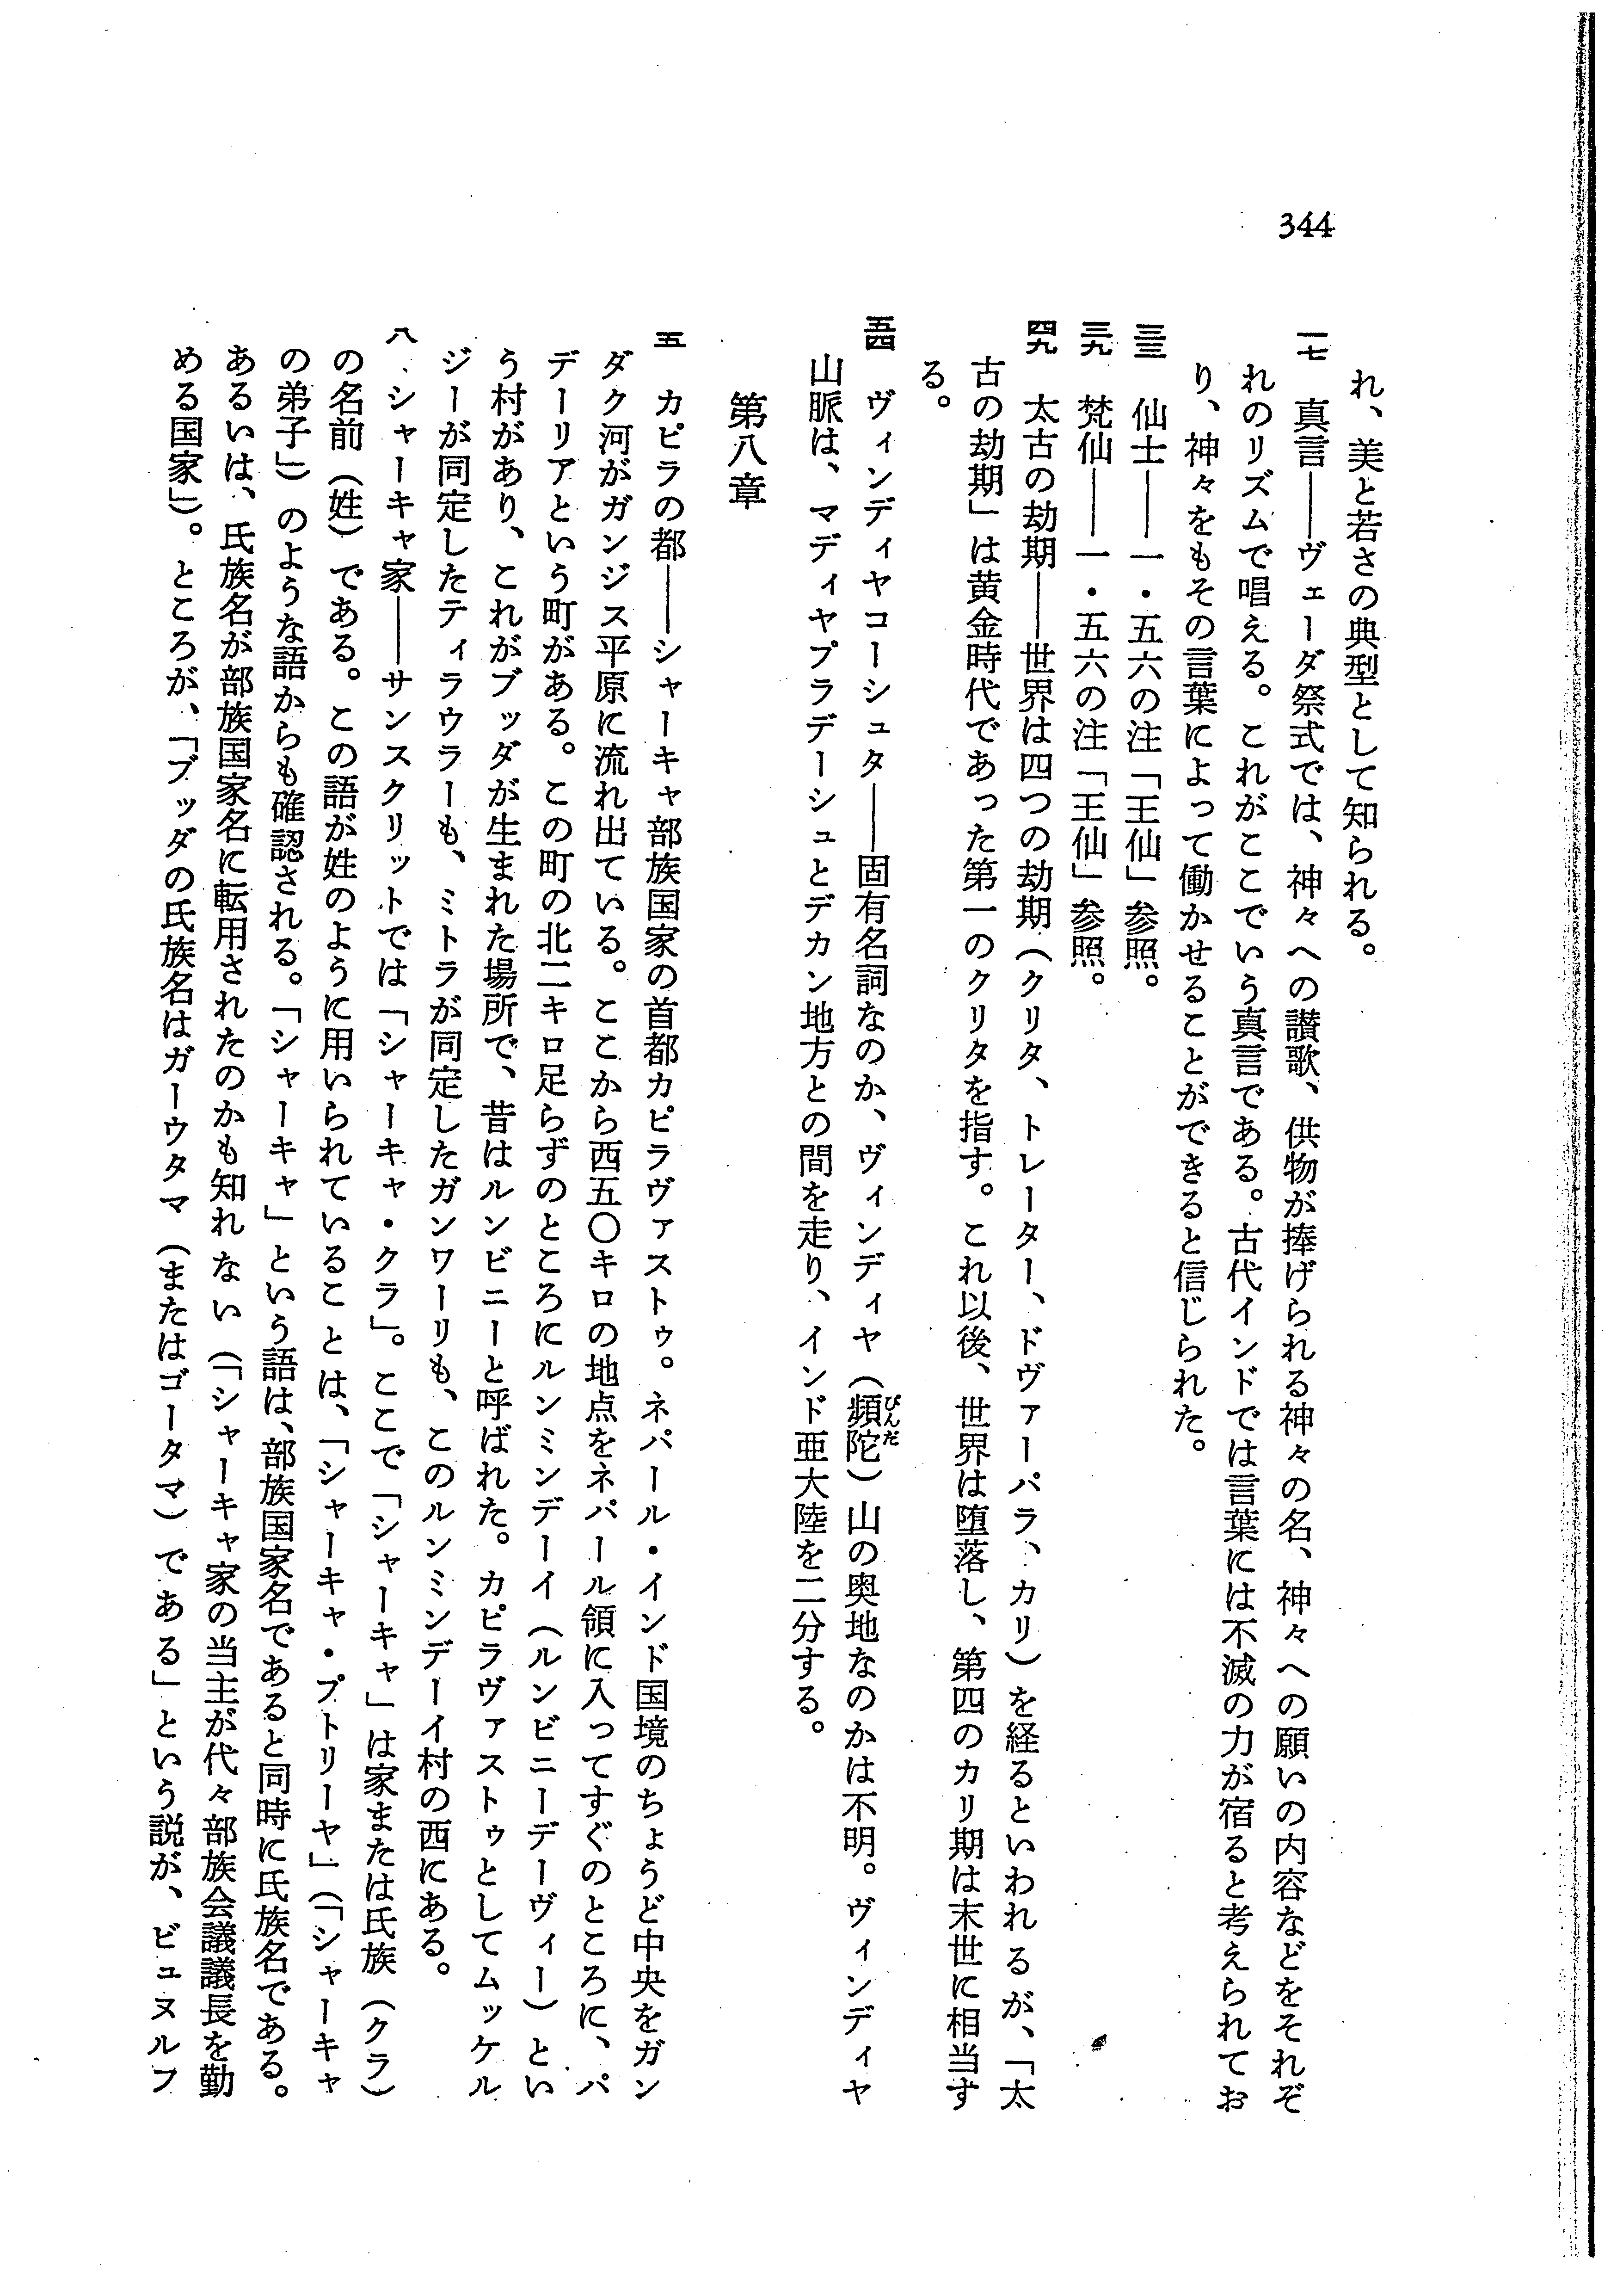 344
れ、美と若さの典型として知られる。
一七 真言――ヴェーダ祭式では、神々への讃歌、供物が捧げられる神々の名、神々への願いの内容などをそれぞ
れのリズムで唱える。これがここでいう真言である。古代インドでは言葉には不滅の力が宿ると考えられてお
り、神々をもその言葉によって働かせることができると信じられた。
三三 仙士――一・五六の注「王仙」参照。
三九 梵仙――一・五六の注「王仙」参照。
四九 太古の劫期――世界は四つの劫期（クリタ、トレーター、ドヴァーパラ、カリ）を経るといわれるが、「太
古の劫期」は黄金時代であった第一のクリタを指す。これ以後、世界は堕落し、第四のカリ期は末世に相当す
る。
五四 ヴィンディヤコーシュタ――固有名詞なのか、ヴィンディヤ（頻陀びんだ）山の奥地なのかは不明。ヴィンディヤ
山脈は、マディヤプラデーシュとデカン地方との間を走り、インド亜大陸を二分する。
第八章
五 カピラの都――シャーキャ部族国家の首都カピラヴァストゥ。ネパール・インド国境のちょうど中央をガン
ダク河がガンジス平原に流れ出ている。ここから西五〇キロの地点をネパール領に入ってすぐのところに、パ
デーリアという町がある。この町の北二キロ足らずのところにルンミンデーイ（ルンビニーデーヴィー）とい
う村があり、これがブッダが生まれた場所で、昔はルンビニーと呼ばれた。カピラヴァストゥとしてムッケル
ジーが同定したティラウラーも、ミトラが同定したガンワーリも、このルンミンデーイ村の西にある。
八 シャーキャ家――サンスクリットでは「シャーキャ・クラ」。ここで「シャーキャ」は家または氏族（クラ）
の名前（姓）である。この語が姓のように用いられていることは、「シャーキャ・プトリーヤ」（「シャーキャ
の弟子」）のような語からも確認される。「シャーキャ」という語は、部族国家名であると同時に氏族名である。
あるいは、氏族名が部族国家名に転用されたのかも知れない（「シャーキャ家の当主が代々部族会議議長を勤
める国家」）。ところが、「ブッダの氏族名はガーウタマ（またはゴータマ）である」という説が、ビュヌルフ